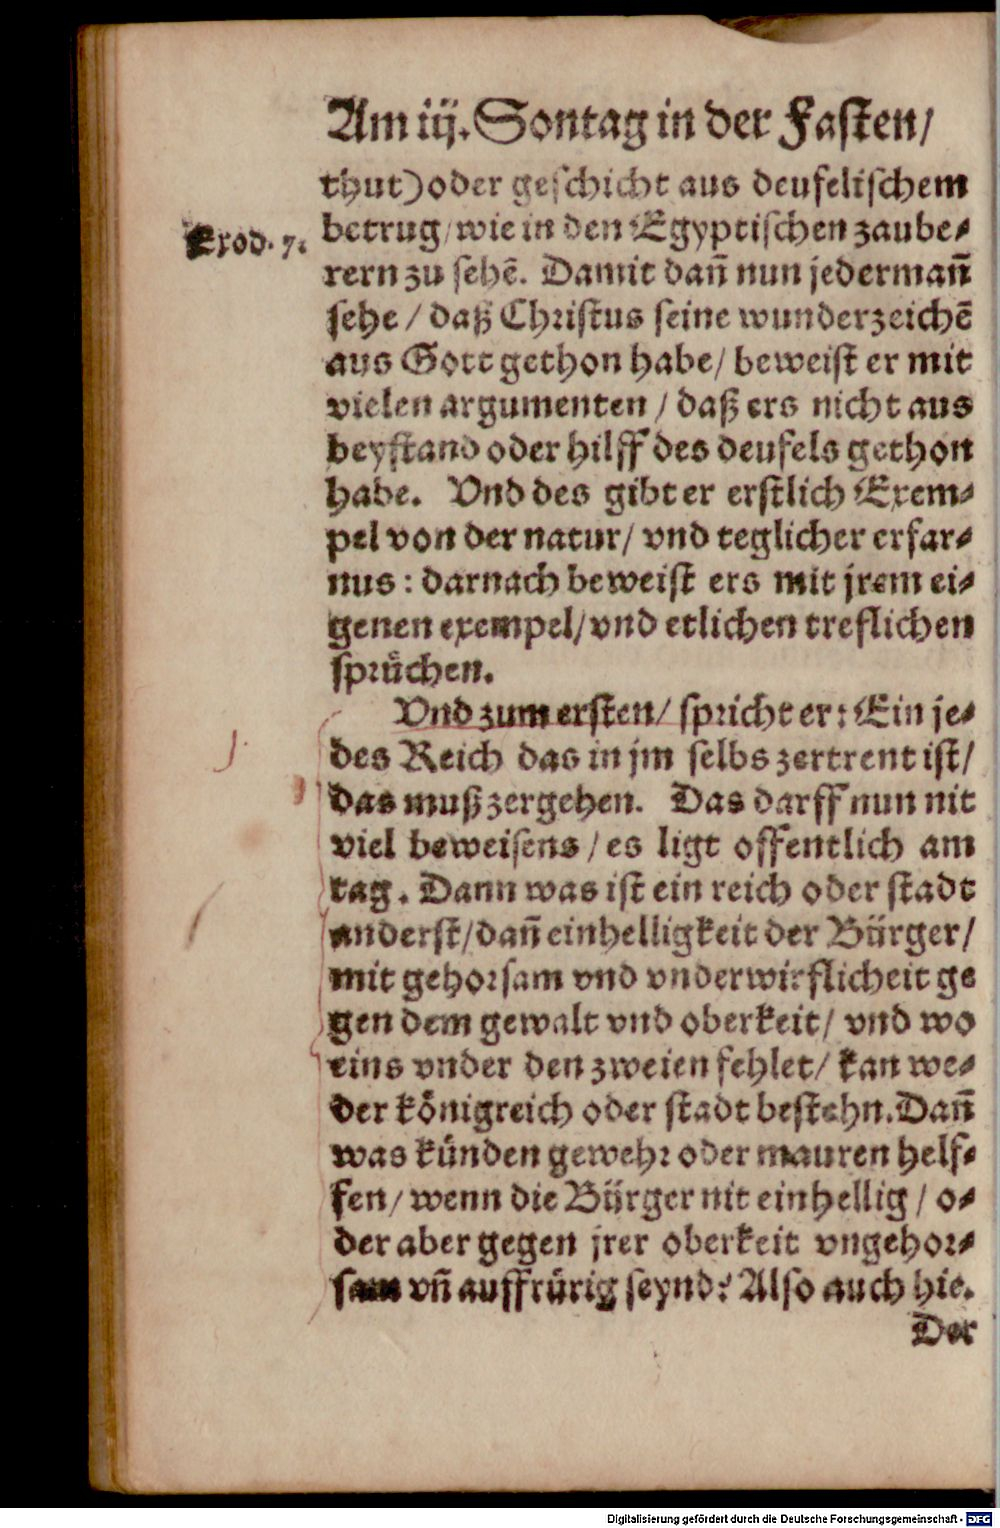 Am iij. Sontag in der Fasten/
thut) oder geschicht aus deufelischem
Exod. 7.
betrug/wie in den Egyptischen zaube-
rern zu sehē. Damit dañ nun jedermañ
sehe / daß Christus seine wunderzeichē
aus Gott gethon habe/ beweist er mit
vielen argumenten / daß ers nicht aus
beystand oder hilff des deufels gethon
habe. Vnd des gibt er erstlich Exem-
pel von der natur/ vnd teglicher erfar-
nus : darnach beweist ers mit jrem ei-
genen exempel/vnd etlichen treflichen
sprůchen.
Vnd zum ersten/ spricht er: Ein je-
des Reich das in jm selbs zertrent ist/
das muß zergehen. Das darff nun nit
viel beweisens / es ligt offentlich am
tag. Dann was ist ein reich oder stadt
anderst/dañ einhelligkeit der Bürger/
mit gehorsam vnd vnderwirflicheit ge
gen dem gewalt vnd oberkeit/ vnd wo
eins vnder den zweien fehlet/ kan we-
der königreich oder stadt bestehn. Dañ
was künden gewehr oder mauren helf-
fen/ wenn die Bürger nit einhellig / o-
der aber gegen jrer oberkeit vngehor-
sam vñ auffrürig seynd? Also auch hie.
Der
Digitalisierung gefördert durch die Deutsche Forschungsgemeinschaft - DFG